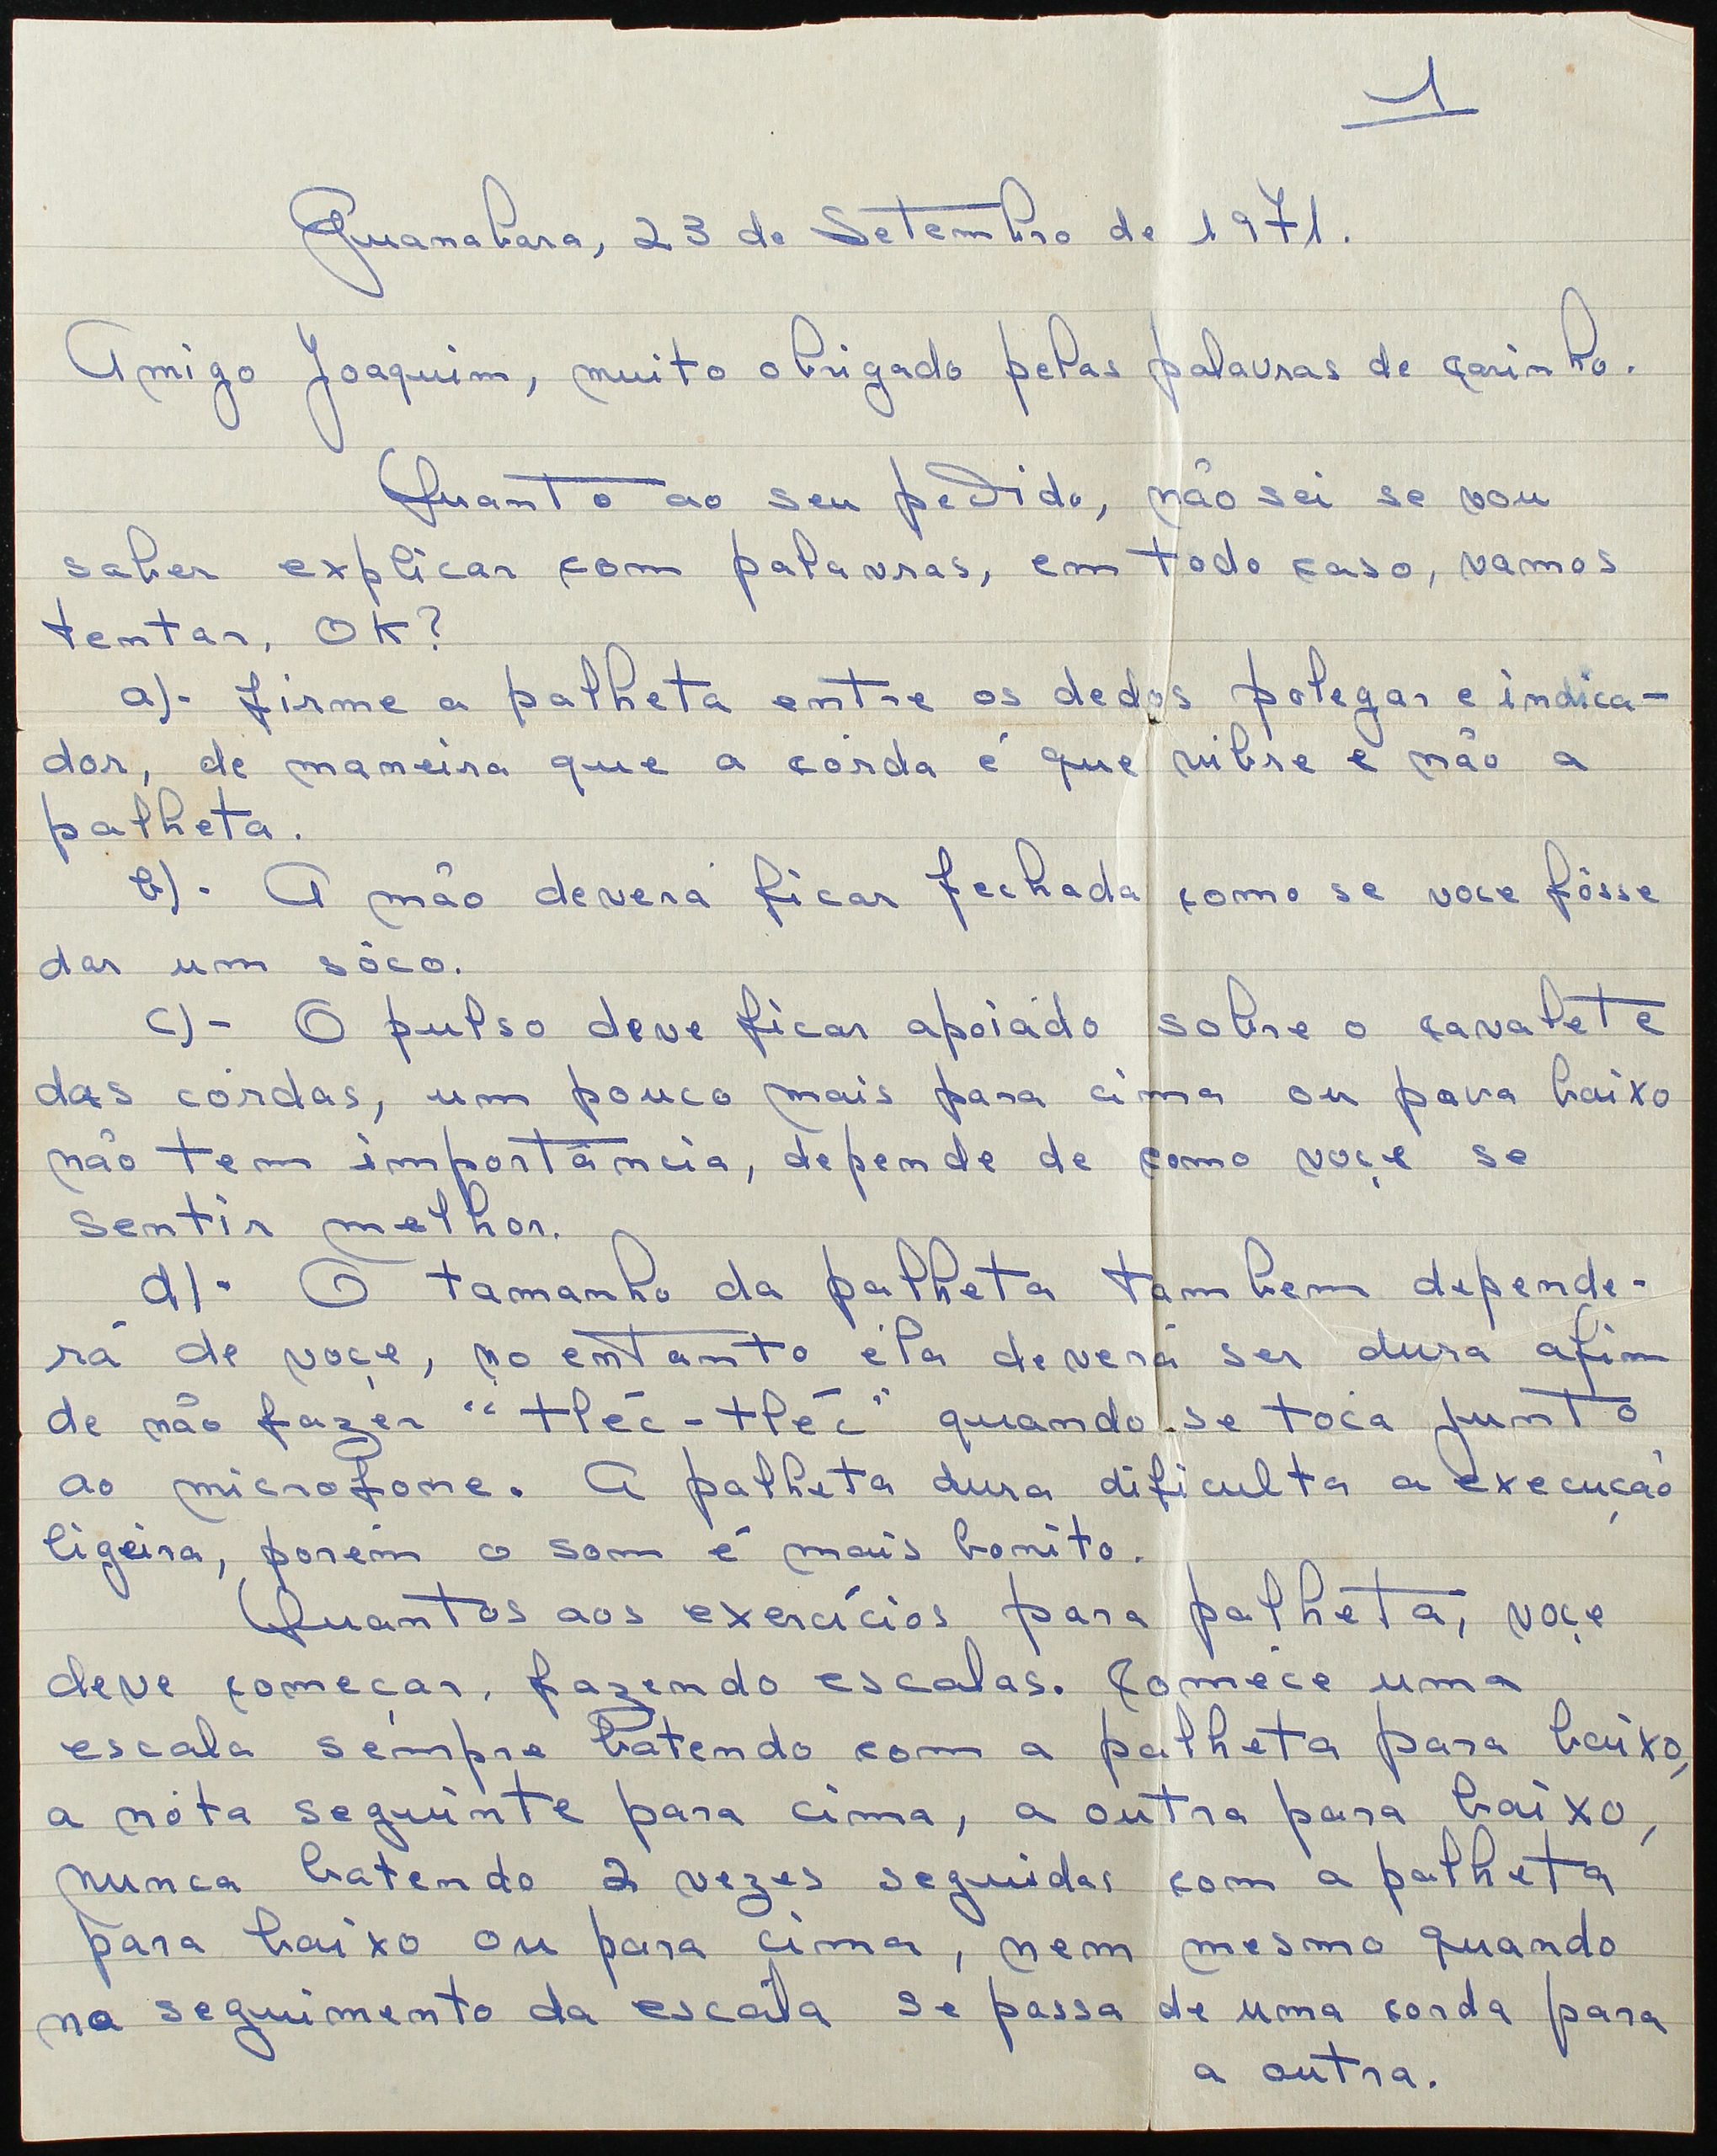 1
Guanabara, 23 de Setembro de 1971.
Amigo Joaquim, muito obrigado pelas palavras de carinho.
Quanto ao seu pedido, não sei se vou
saber explicar com palavras, em todo caso, vamos
tentar, OK?
a)- firme a palheta entre os dedos polegar e indica-
dor, de maneira que a córda é que vibre e não a
palheta.
b)- A mão deverá ficar fechada como se voce fôsse
dar um sôco.
c)- O pulso deve ficar apoiádo sobre o cavalete
das córdas, um pouco mais para cima ou para baixo
não tem importância, depende de como voçe se
sentir melhor.
d)- O tamanho da palheta tambem depende-
rá de voçe, no entanto éla deverá ser dura afim
de não fazer "tléc-tléc" quando se toca junto
ao microfone. A palheta dura dificulta a execução
ligeira, porém o som é mais bonito.
Quantos aos exercícios para palheta, voçe
deve começar, fazendo escalas. Coméce uma
escala sempre batendo com a palheta para baixo,
a nóta seguinte para cima, a outra para baixo,
nunca batendo 2 vezes seguidas com a palheta
para baixo ou para cima, nem mesmo quando
no seguimento da escála se passa de uma corda para
a outra.